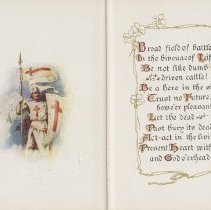 Broad field of battle
In the bivouac of Lif
Be not like dumb
driven cattle!
Be a hero in the
Trust no Future,
howe'er pleasant
Let the dead
That bury its dead
Act-act in the livin
Present Heart with
and God o'erhead